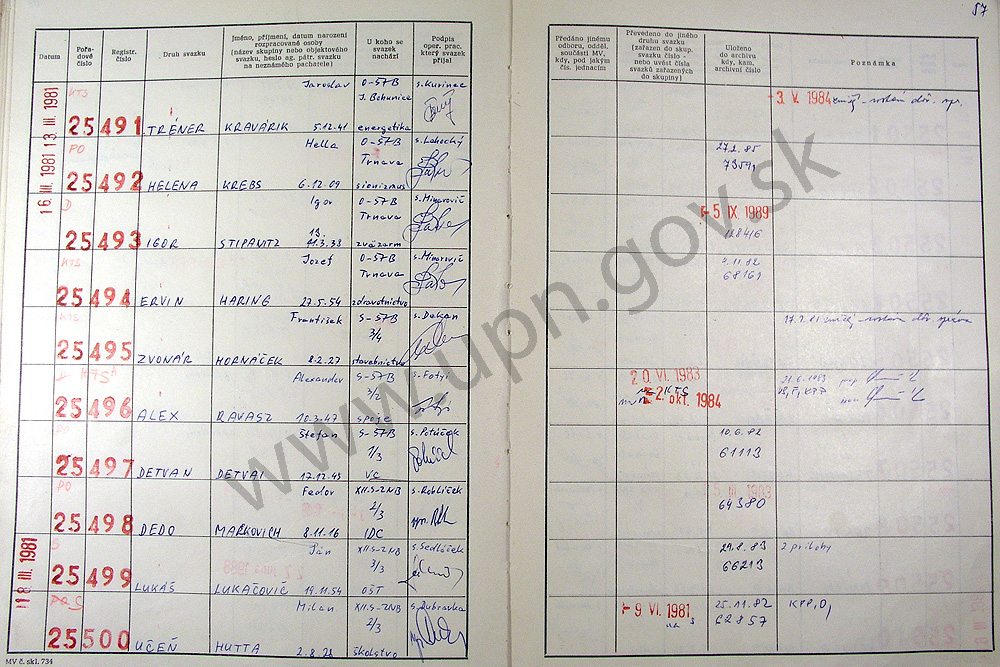 57
Datum
Pořadové číslo
Registr. číslo
Druh svazku
Jméno, příjmení, datum narození rozpracované osoby (název skupiny nebo objektového svazku, heslo ag. pátr. svazku na neznámého pachatele)
U koho se svazek nachází
Podpis oper. prac. který svazek přijal
Předáno jinému odboru, odděl. součásti MV, kdy, pod jakým čís. jednacím
Převedeno do jiného druhu svazku (zařazen do skup. svazku číslo - nebo uvést čísla svazků zařazených do skupiny)
Uloženo do archivu kdy, kam, archivní číslo
Poznámka
13. III. 1981
KTS
Jaroslav O-57B s. Kurinec
J. Bohunice
3. V. 1984
25491 TRÉNER KRAVÁRIK 5.12.41 energetika
16. III. 1981
PO
Hella O-57B
Trnava
27.2.85
25492 HELENA KREBS 6.12.09 sionizmus
D
Igor O-57B s. Minarovič
Trnava
5 IX. 1989
12846
25493 IGOR
zväzarm
KTS
Jozef O-57B s. Minarovič
Trnava
4.11.82
68169
25494 ERVIN HARING 27.5.54 zdravotníctvo
KTS
František S-57B s. Dekan
3/4
25495 ZVONÁR HORNÁČEK 8.2.27 stavebníctvo
Alexander S-57B
3/2
20. VI. 1983
KTS
2. okt. 1984
21.6.1983
25496 ALEX RAVASZ 10.3.47 spoje
PO
Štefan S-57B s. Potúček
1/3
10.6.82
61113
25497 DETVAN DETVAI 17.12.43 VC
PO
Fedor XII.S-ZNB s. Roblíček
2/3
64380
25498 DEDO MARKOVICH 8.11.16 IDC
18. III. 1981
S
Ján XII.S-ZNB s. Sedláček
3/3
29.8.83 2 prílohy
66213
25499 LUKÁŠ LUKAČOVIČ 19.11.54 OŠT
Milan XII.S-ZNB s. Dubravka
2/3
9 VI. 1981
25.11.82
62857
25500 UČEŇ HUTTA 2.8.28 školstvo
MV č. skl. 734
www.upn.gov.sk